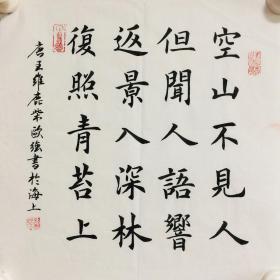 空山不見人
但聞人語響
返景入深林
復照青苔上
唐王維鹿柴歐強書於海上